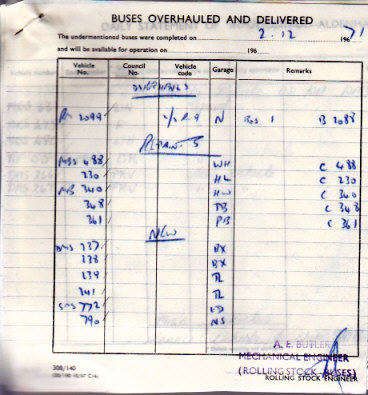 BUSES OVERHAULED AND DELIVERED
The undermentioned buses were completed on 2.12 1971
and will be available for operation on 196
Vehicle No. Council No. Vehicle code Garage Remarks
OVERHAULS
RM 2099 N BOS 1 B 2088
REPAINTS
MBS 488 WH C 488
230 HL C 230
MB 340 HW C 340
348 PB C 348
361 PB C 361
NEW
DMS 137 BX
138 BX
139 TL
141 TL
SMS 772 ED
790 NS
A. E. BUTLER
MECHANICAL ENGINEER
(ROLLING STOCK - BUSES)
ROLLING STOCK ENGINEER
308/140